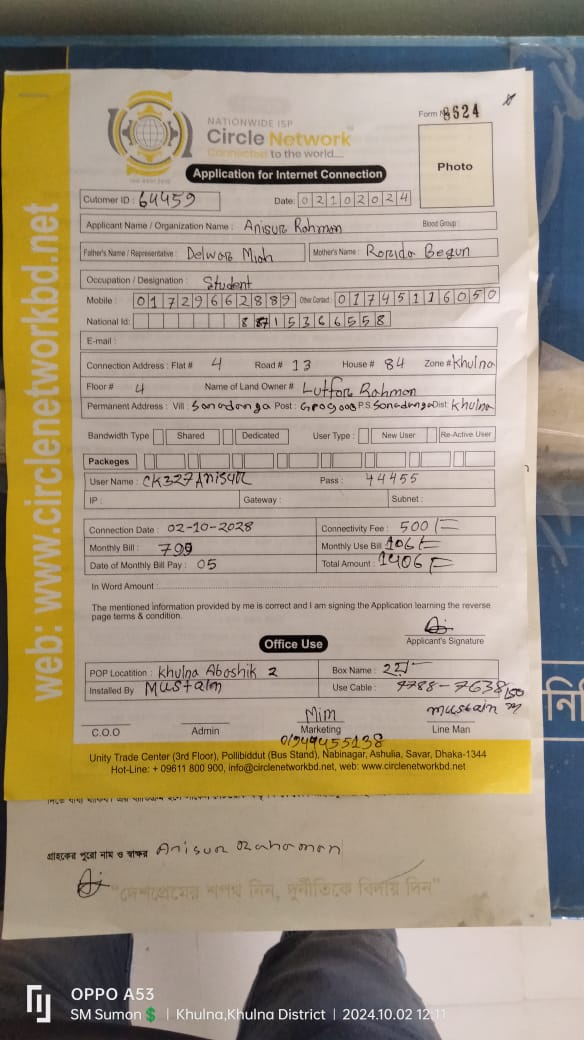 NATIONWIDE ISP
Circle Network
Connected to the world....
Form N 8624
Application for Internet Connection
Photo
Cutomer ID : 64459 Date: 02102024
Applicant Name / Organization Name : Anisur Rahman Blood Group :
Father's Name / Representative : Delwar Miah Mother's Name : Begun
Occupation / Designation : Student
Mobile : 01729662889 Other Contact : 01745116050
National Id: 5366558
E-mail :
Connection Address : Flat # 4 Road # 13 House # 84 Zone # Khulna
Floor # 4 Name of Land Owner # Lutfor Rahman
Permanent Address : Vill : Sonadanga Post : P.S Sonadanga Dist: Khulna
Bandwidth Type Shared Dedicated User Type : New User Re-Active User
Packeges
User Name : CK327Anisur Pass : 44455
IP : Gateway : Subnet :
Connection Date : 02-10-2028 Connectivity Fee : 500/=
Monthly Bill : 799 Monthly Use Bill 106/=
Date of Monthly Bill Pay : 05 Total Amount : 1406/=
In Word Amount :
The mentioned information provided by me is correct and I am signing the Application learning the reverse
page terms & condition.
Applicant's Signature
Office Use
POP Locatition : Khulna Aboshik 2 Box Name :
Installed By Mustaim Use Cable : 7788-7638
Mim mustaim
C.O.O Admin Marketing Line Man
Unity Trade Center (3rd Floor), Pollibiddut (Bus Stand), Nabinagar, Ashulia, Savar, Dhaka-1344
Hot-Line: + 09611 800 900, info@circlenetworkbd.net, web: www.circlenetworkbd.net
web: www.circlenetworkbd.net
গ্রাহকের পুরো নাম ও স্বাক্ষর Anisur Rahaman
"দেশপ্রেমের শপথ নিন, দুর্নীতিকে বিদায় দিন"
নি
OPPO A53
SM Sumon💲 | Khulna,Khulna District | 2024.10.02 12:11